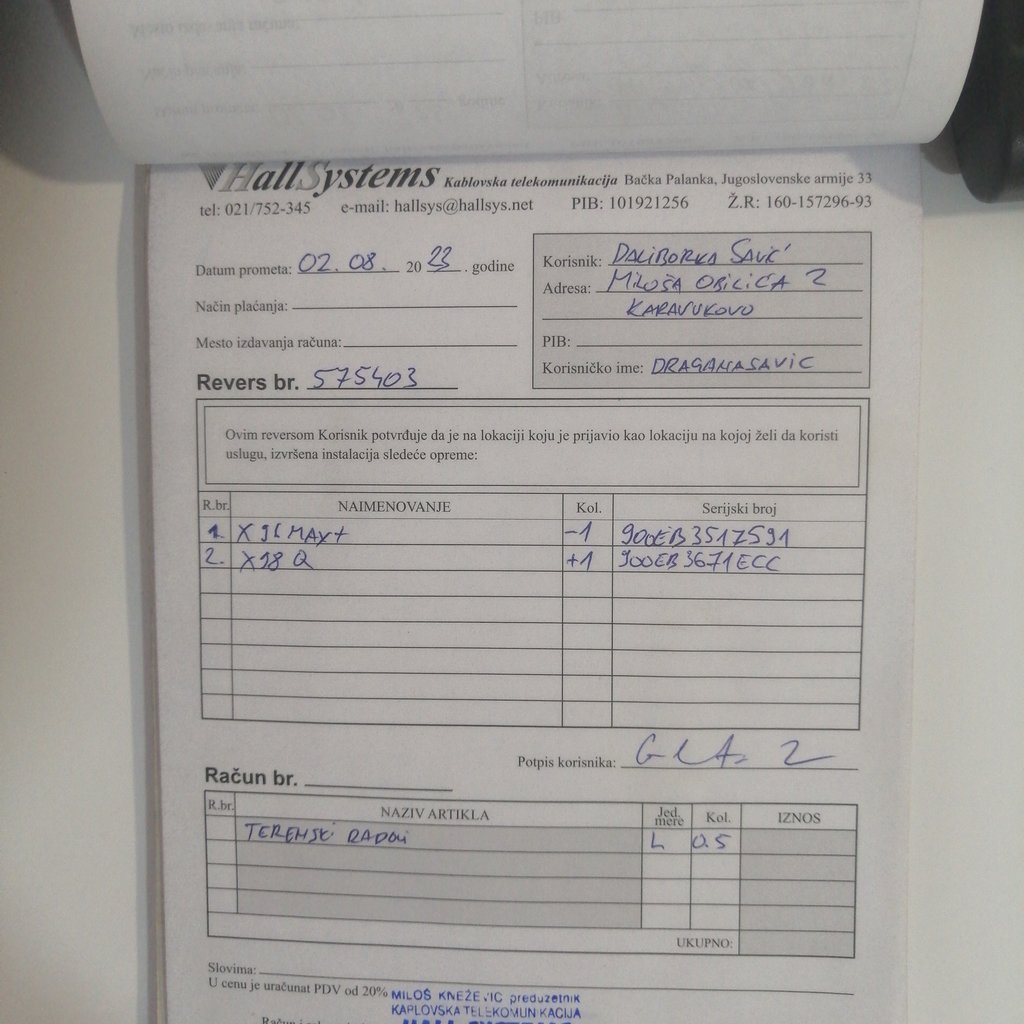 HallSystems Kablovska telekomunikacija Bačka Palanka, Jugoslovenske armije 33
tel: 021/752-345 e-mail: hallsys@hallsys.net PIB: 101921256 Ž.R: 160-157296-93
Datum prometa: 02. 08. 20 23 . godine
Način plaćanja:
Mesto izdavanja računa:
Revers br. 575403
Korisnik: DALIBORKA SAVIĆ
Adresa: MILOŠA OBILIĆA 2
KARAVUKOVO
PIB:
Korisničko ime: DRAGANASAVIC
Ovim reversom Korisnik potvrđuje da je na lokaciji koju je prijavio kao lokaciju na kojoj želi da koristi
uslugu, izvršena instalacija sledeće opreme:
R.br. NAIMENOVANJE Kol. Serijski broj
1. X96 MAX+ -1 900EB3517591
2. X98 Q +1 900EB3671ECC
Potpis korisnika:
Račun br.
R.br. NAZIV ARTIKLA Jed. mere Kol. IZNOS
TERENSKI RADOVI L 0.5
UKUPNO:
Slovima:
U cenu je uračunat PDV od 20%
MILOŠ KNEŽEVIĆ preduzetnik
KABLOVSKA TELEKOMUNIKACIJA